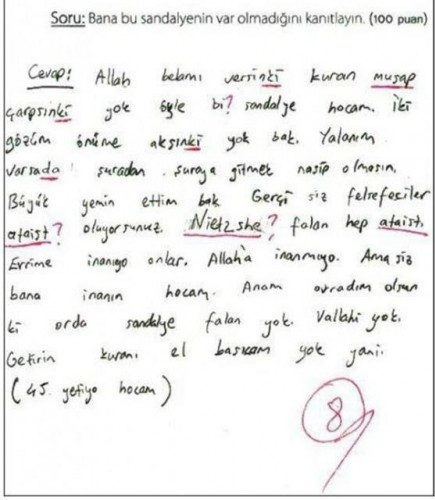 Soru: Bana bu sandalyenin var olmadığını kanıtlayın. (100 puan)
Cevap: Allah belamı versinki kuran musap
çarpsinki yok öyle bi? sandalye hocam. İki
gözüm önüme aksınki yok bak. Yalanım
varsada! şuradan şuraya gitmek nasip olmasın.
Büyük yemin ettim bak Gerçi siz felsefeciler
ataist? oluyorsunuz. Nietzshe? falan hep ataist.
Evrime inanıyo onlar. Allah'a inanmıyo. Ama siz
bana inanın hocam. Anam avradım olsun
ki orda sandalye falan yok. Vallahi yok.
Getirin kuranı el basıcam yok yani.
(45 yetiyo hocam)
8